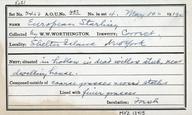 Set 3463 A.O.U. No. 493 No. 4. May 10
Name European Starling
Collected by W. W. WORTHINGTON Identity, Correct
Locality, Shelter Island New York
Nest, situated in hollow in dead willow stub, near
dwelling house.
Composed outside of coarse grasses
Lined with finer grasses
Incubation, Fresh